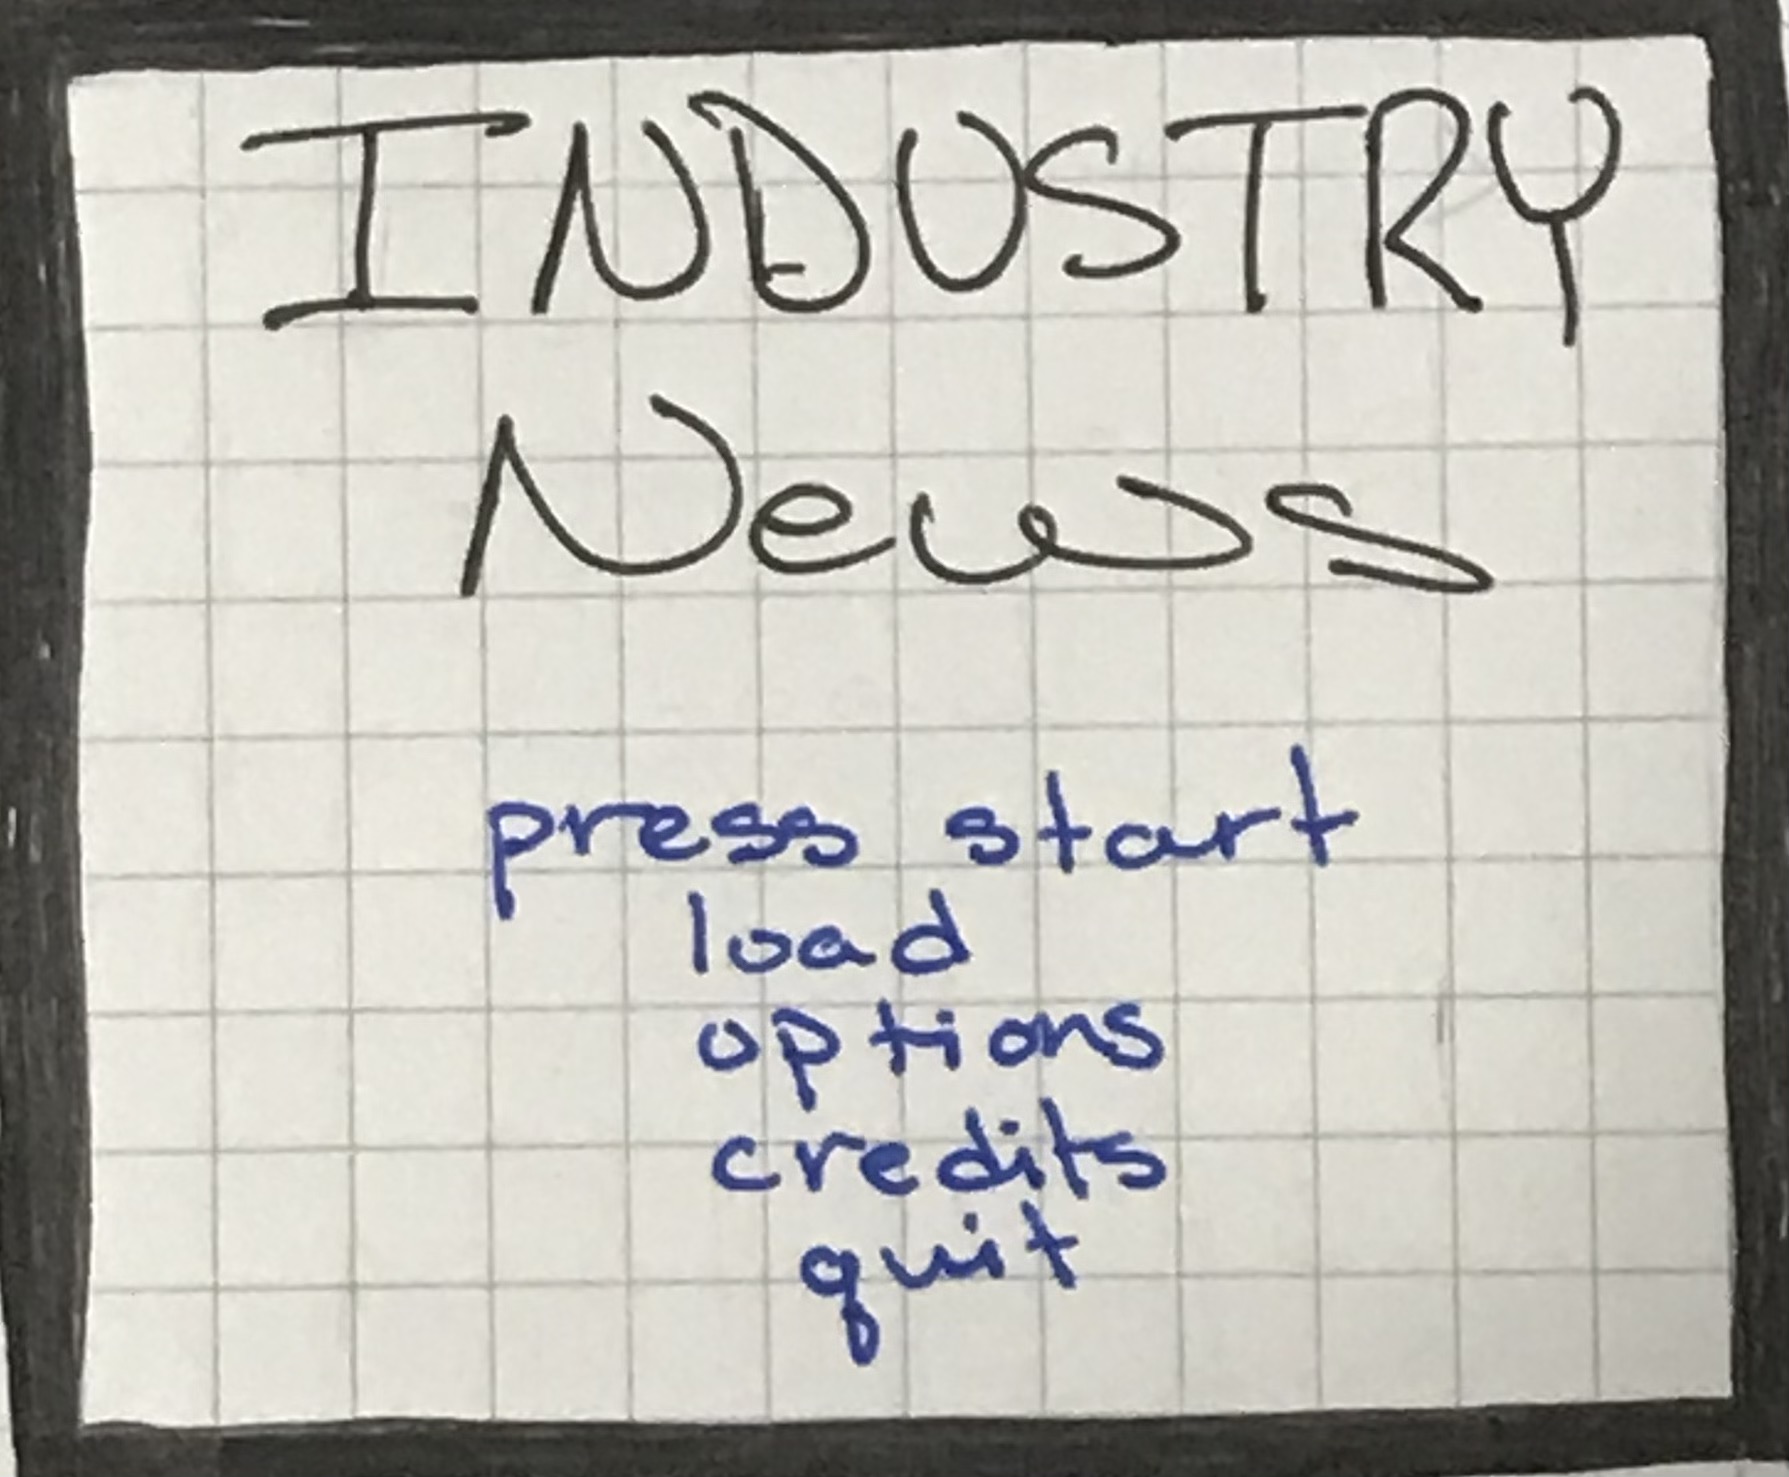 INDUSTRY
News
press start
load
options
credits
quit